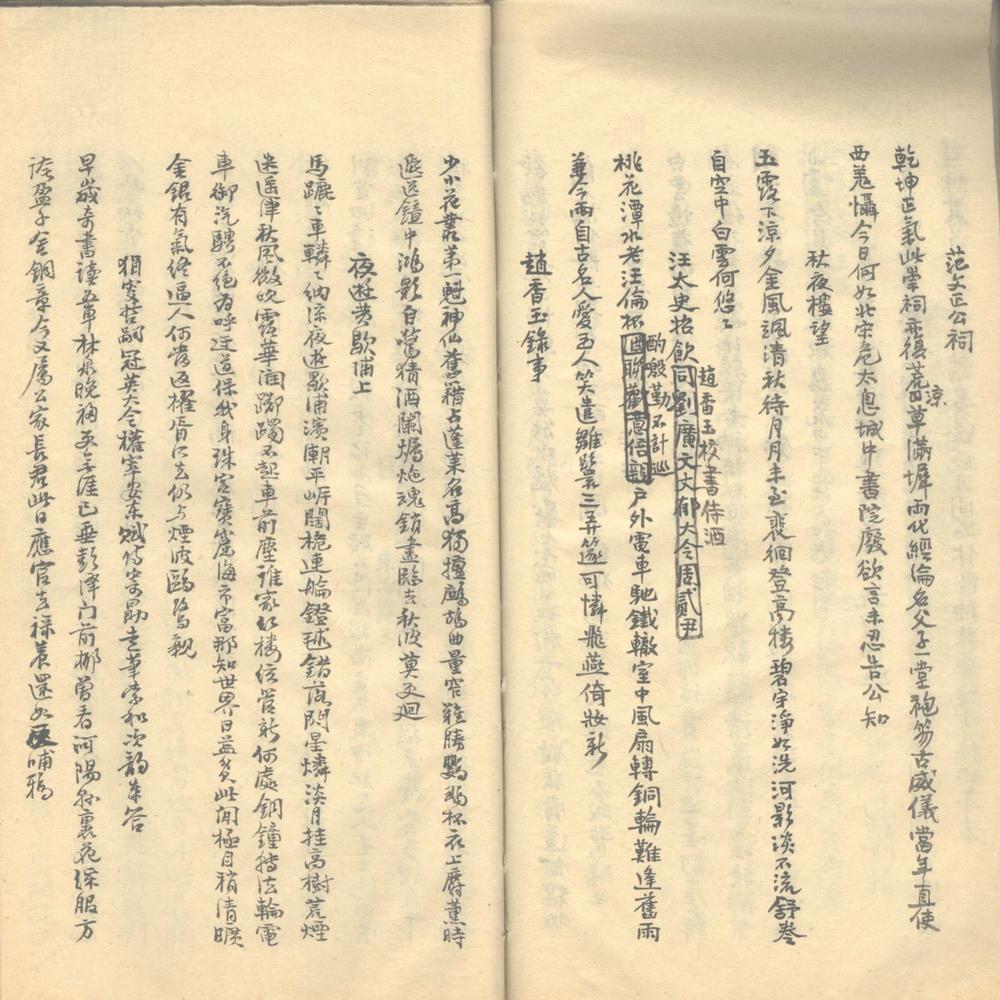 范文正公祠
乾坤正氣此崇祠亦復荒涼草滿墀兩代經綸名父子一堂袍笏古威儀當年直使
西羌懾今日何如北宋危太息城中書院廢欲言未忍告公知
秋夜樓望
玉露下涼夕金風颯清秋待月月未至裴徊登高樓碧宇淨如洗河影淡不流舒卷
自空中白雲何悠々
汪太史招飲同劉廣文文郁大令周貳尹
趙香玉校書侍酒
桃花潭水老汪倫杯酌殷勤不計巡戶外電車馳鐵轍室中風扇轉銅輪難逢舊雨
兼今雨自古名人愛玉人笑遣雛鬟三弄篴可憐飛燕倚妝新
趙香玉錄事
少小花叢第一魁神仙舊籍占蓬萊名高獨擅鷓鴣曲量窄難勝鸚鵡杯衣上麝薰時
遞送鏡中鴻影自驚猜酒闌燭灺魂銷盡臨去秋波莫更迴
夜遊黃歇浦上
馬蹏々車轔々納涼夜遊歇浦濱潮平岸闊桅連艫鐙毬錯落閃星燐淡月挂高樹荒煙
迷遥津秋風微吹露華潤躑躅不起車前塵誰家紅樓弦管新何處銅鐘轉法輪電
車御汽騁不絕為呼迂道保我身珠宮寶窟海市富那知世界日益貧此間極目稍清曠
金銀有氣終逼人何當返櫂胥口去仍與煙波鷗鷺親
冠英大令權宰婁東賦詩索和次韵奉答
早歲奇書讀等車林泉晚福更無涯已垂彭澤門前柳曾看河陽縣裏花綵服方
誇盈子舍銅章今又屬公家長君此日應官去祿養還如反哺鴉